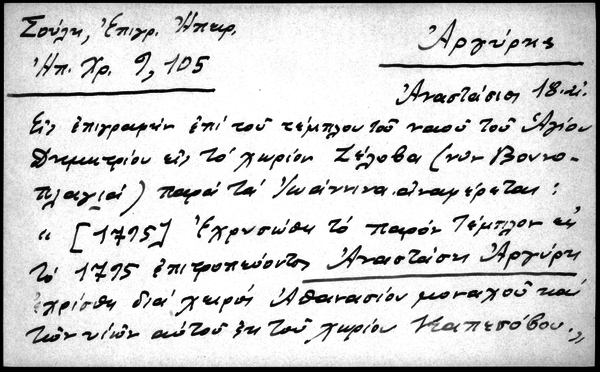 Σούλη, Ἐπιγρ. Ἠπειρ.
Ἠπ. Χρ. 9, 105
Ἀργύρης
Ἀναστάσιος 18. αἰ.
Εἰς ἐπιγραφήν ἐπί τοῦ τέμπλου τοῦ ναοῦ τοῦ Ἁγίου
Δημητρίου εἰς τό χωρίον Τζέλοβα (νῦν Βουνο-
πλαγιά) παρά τά Ἰωάννινα ἀναφέρεται:
" [1795] Ἐχρυσώθη τό παρόν τέμπλον εἰς
τό 1795 ἐπιτροπεύοντος Ἀναστάση Ἀργύρη
ἐχρίσθη διά χειρός Ἀθανασίου μοναχοῦ καί
τῶν υἱῶν αὐτοῦ ἐκ τοῦ χωρίου Καπεσόβου.„